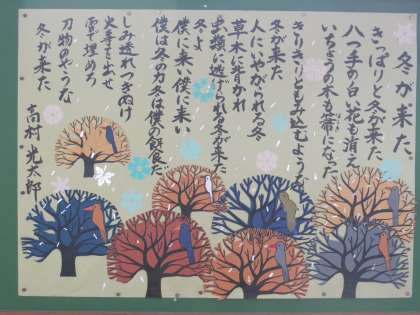 冬が来た
きっぱりと冬が来た
八つ手の白い花も消え
いちょうの木も箒になった
きりきりともみ込むような
冬が来た
人にいやがられる冬
草木に背かれ
虫類に逃げられる冬が来た
冬よ
僕に来い僕に来い
僕は冬の力冬は僕の餌食だ
しみ透れつきぬけ
火事を出せ
雪で埋めろ
刃物のやうな
冬が来た
高村光太郎